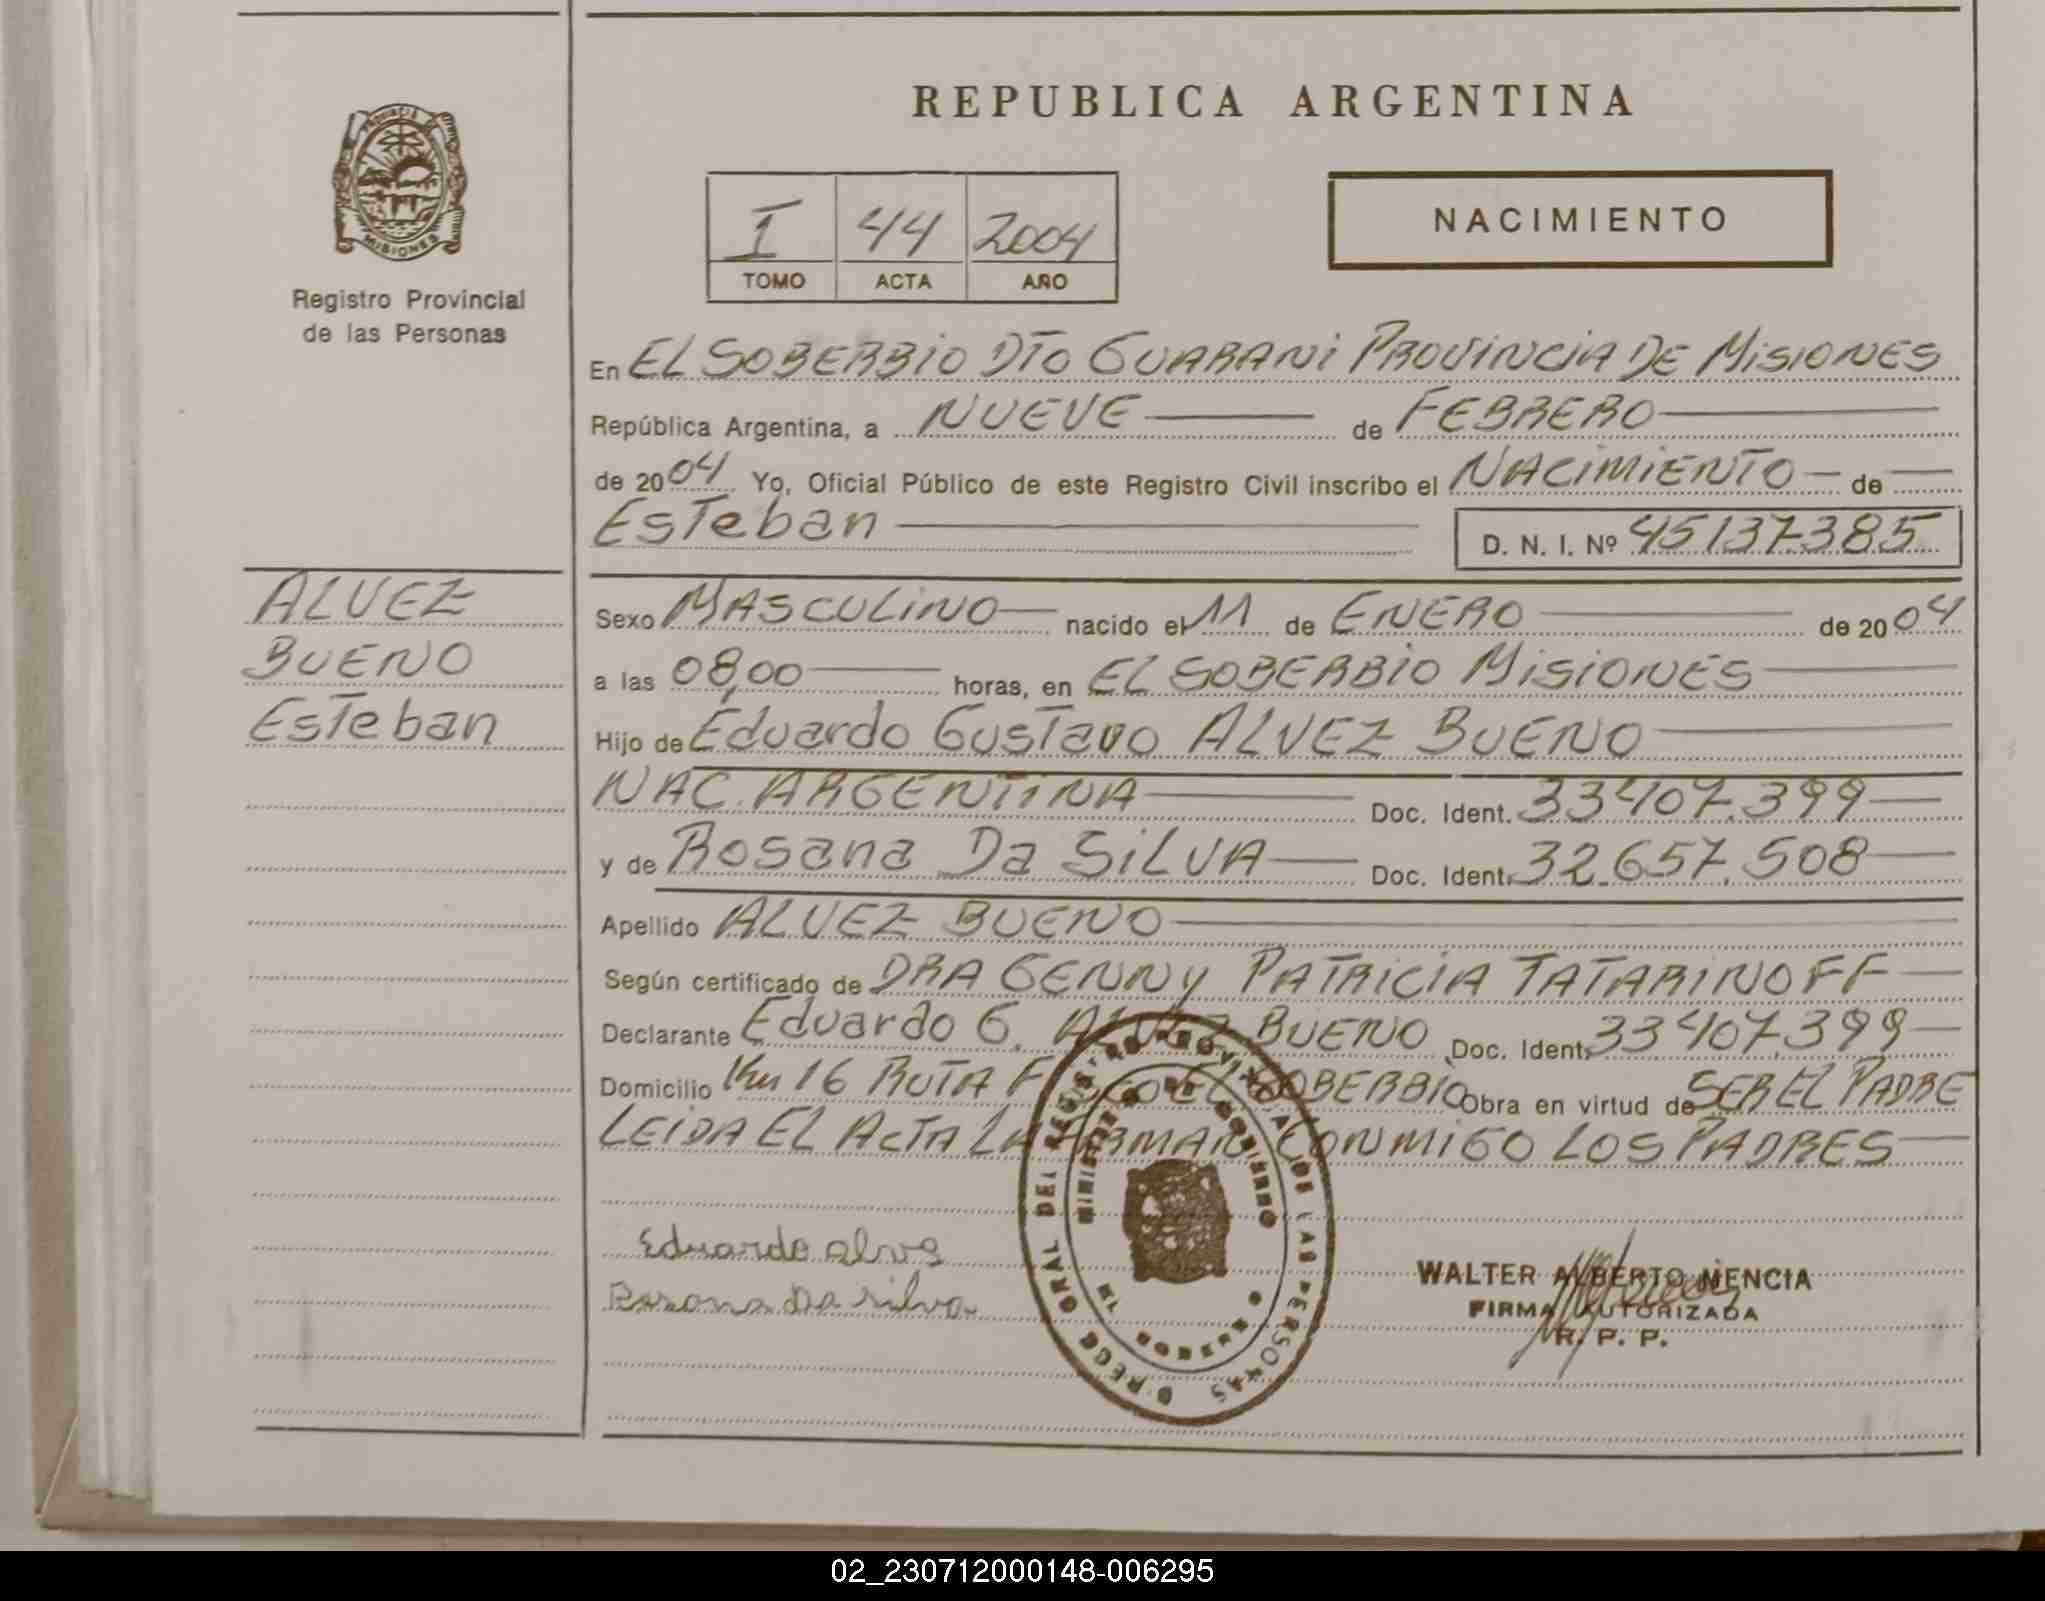 REPUBLICA ARGENTINA
PROVINCIA DE
MISIONES
Registro Provincial
de las Personas
I 44 2004
TOMO ACTA AÑO
NACIMIENTO
En EL SOBERBIO DTO GUARANI PROVINCIA DE MISIONES
República Argentina, a NUEVE de FEBRERO
de 2004 Yo, Oficial Público de este Registro Civil inscribo el NACIMIENTO de
Esteban D. N. I. Nº 45137385
ALVEZ
BUENO
Esteban
Sexo MASCULINO nacido el 11 de ENERO de 2004
a las 08,00 horas, en EL SOBERBIO MISIONES
Hijo de Eduardo Gustavo ALVEZ BUENO
NAC. ARGENTINA Doc. Ident. 33407.399
y de Rosana Da SILVA Doc. Ident. 32.657.508
Apellido ALVEZ BUENO
Según certificado de DRA GENNY PATRICIA TATARINOFF
Declarante Eduardo G. ALVEZ BUENO Doc. Ident. 33407.399
Domicilio Km 16 RUTA EL SOBERBIO Obra en virtud de SER EL PADRE
LEIDA EL ACTA LA FIRMAN CONMIGO LOS PADRES
Eduardo alves
Rosana Da silva
DIREC. GRAL DEL REGISTRO PROVINCIAL DE LAS PERSONAS
MINISTERIO DE GOBIERNO
EL SOBERBIO
WALTER ALBERTO MENCIA
FIRMA AUTORIZADA
R. P. P.
02_230712000148-006295